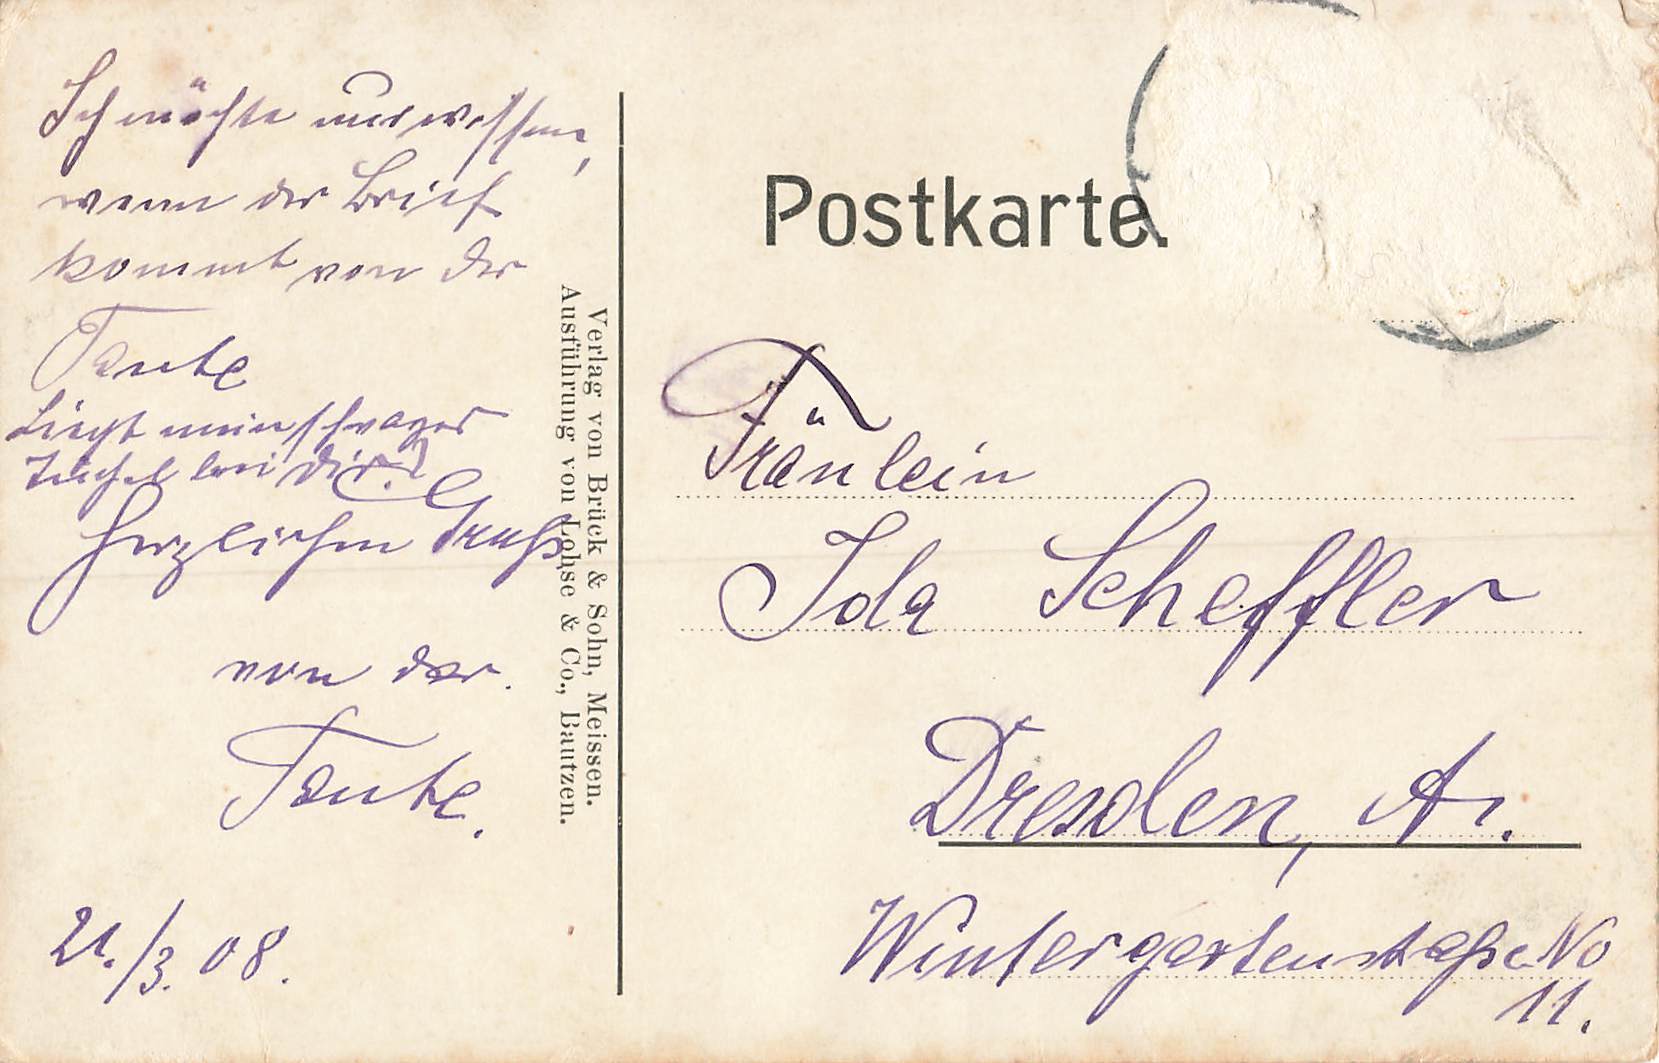 Ich möchte nur wissen,
wenn der Brief
kommt von der
Tante
Liegt mein
bei dir?
Herzlichen Gruß
von der
Tante.
21./3. 08.
Verlag von Brück & Sohn, Meissen.
Ausführung von Lohse & Co., Bautzen.
Postkarte.
Fräulein
Ida Scheffler
Dresden, A.
Wintergartenstraße No
11.